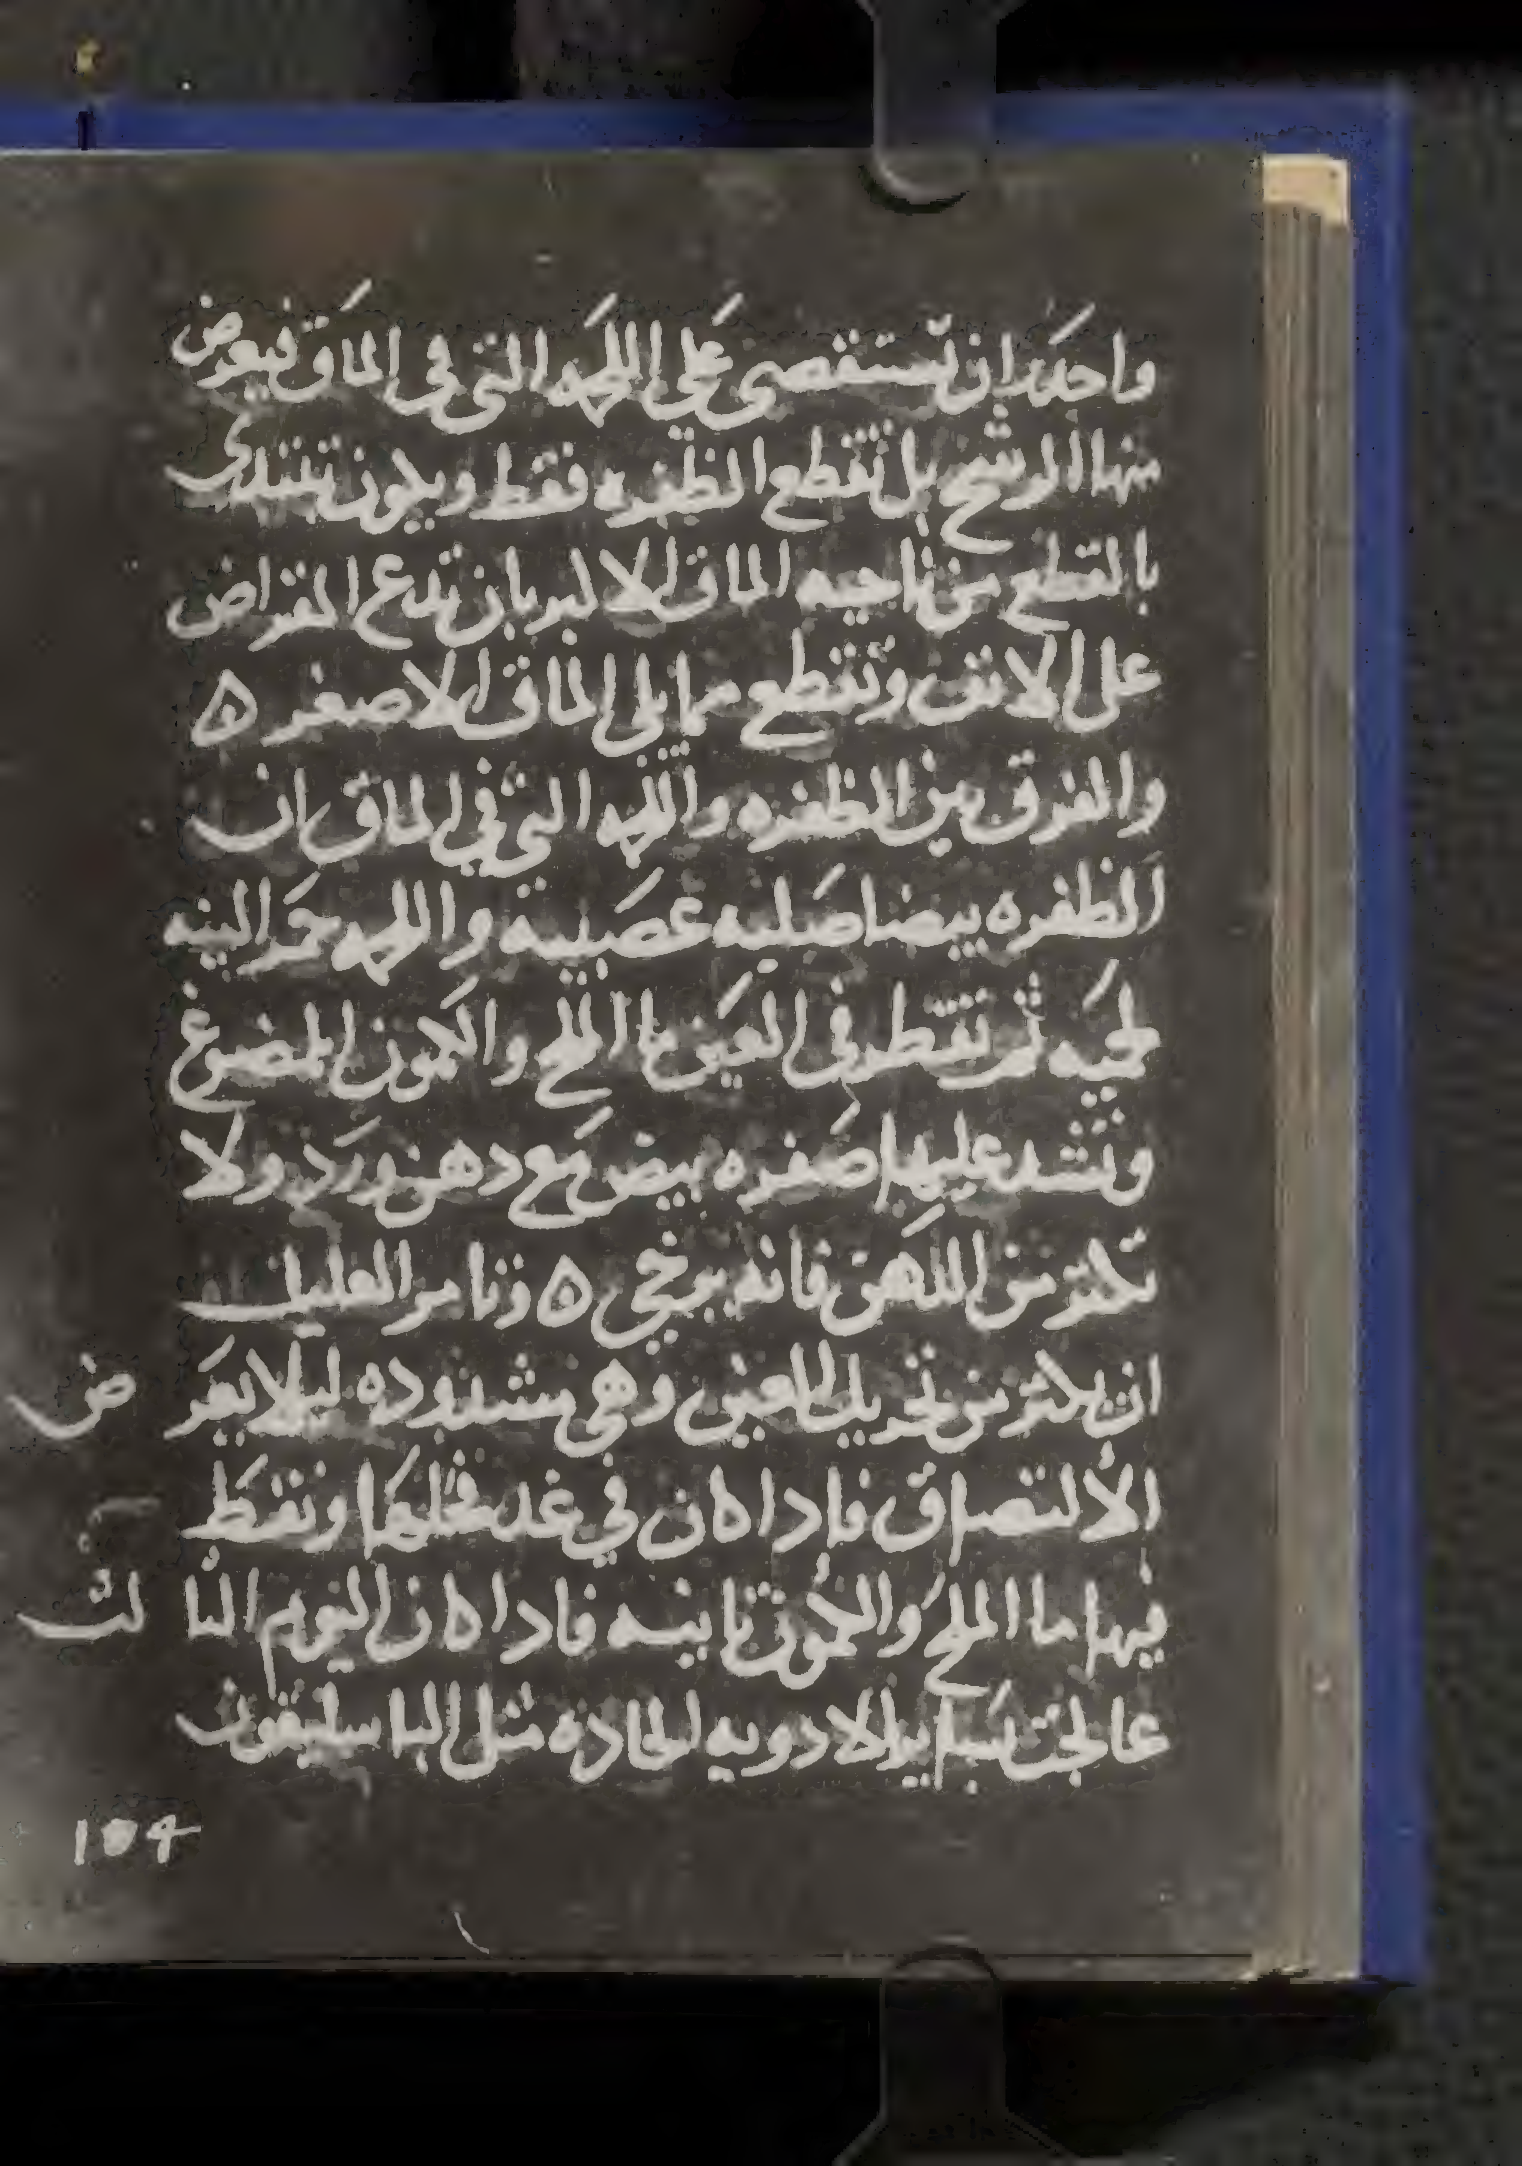 واحدر ان تستقصى على اللحمه التي في الماق فيعرض
منها الرشح بل تقطع الظفره فقط ويكون تبتدى
بالقطع من ناحيه الماق الاكبر بان تدع المقراض
على الانف وتقطع مما يلي الماق الاصغر ه
والفرق بين الظفره واللحمه التي في الماق ان
الظفره بيضا صلبه عصبيه واللحمه حمرا لينه
لحميه ثم تقطر في العين ما الملح والكمون الممضوغ
وتشد عليها صفره بيض مع دهن ورد ولا
تكثر من الدهن فانه يرخى ه وتامر العليل
ان يكثر من تحريك العين وهي مشدوده ليلا يعرض
الالتصاق فادا كان في غد فحلها وتقطر
فيها ما الملح والكمون ثانيه فادا كان اليوم الثالث
عالجت بساير الادويه الحاده مثل الباسليقون
104